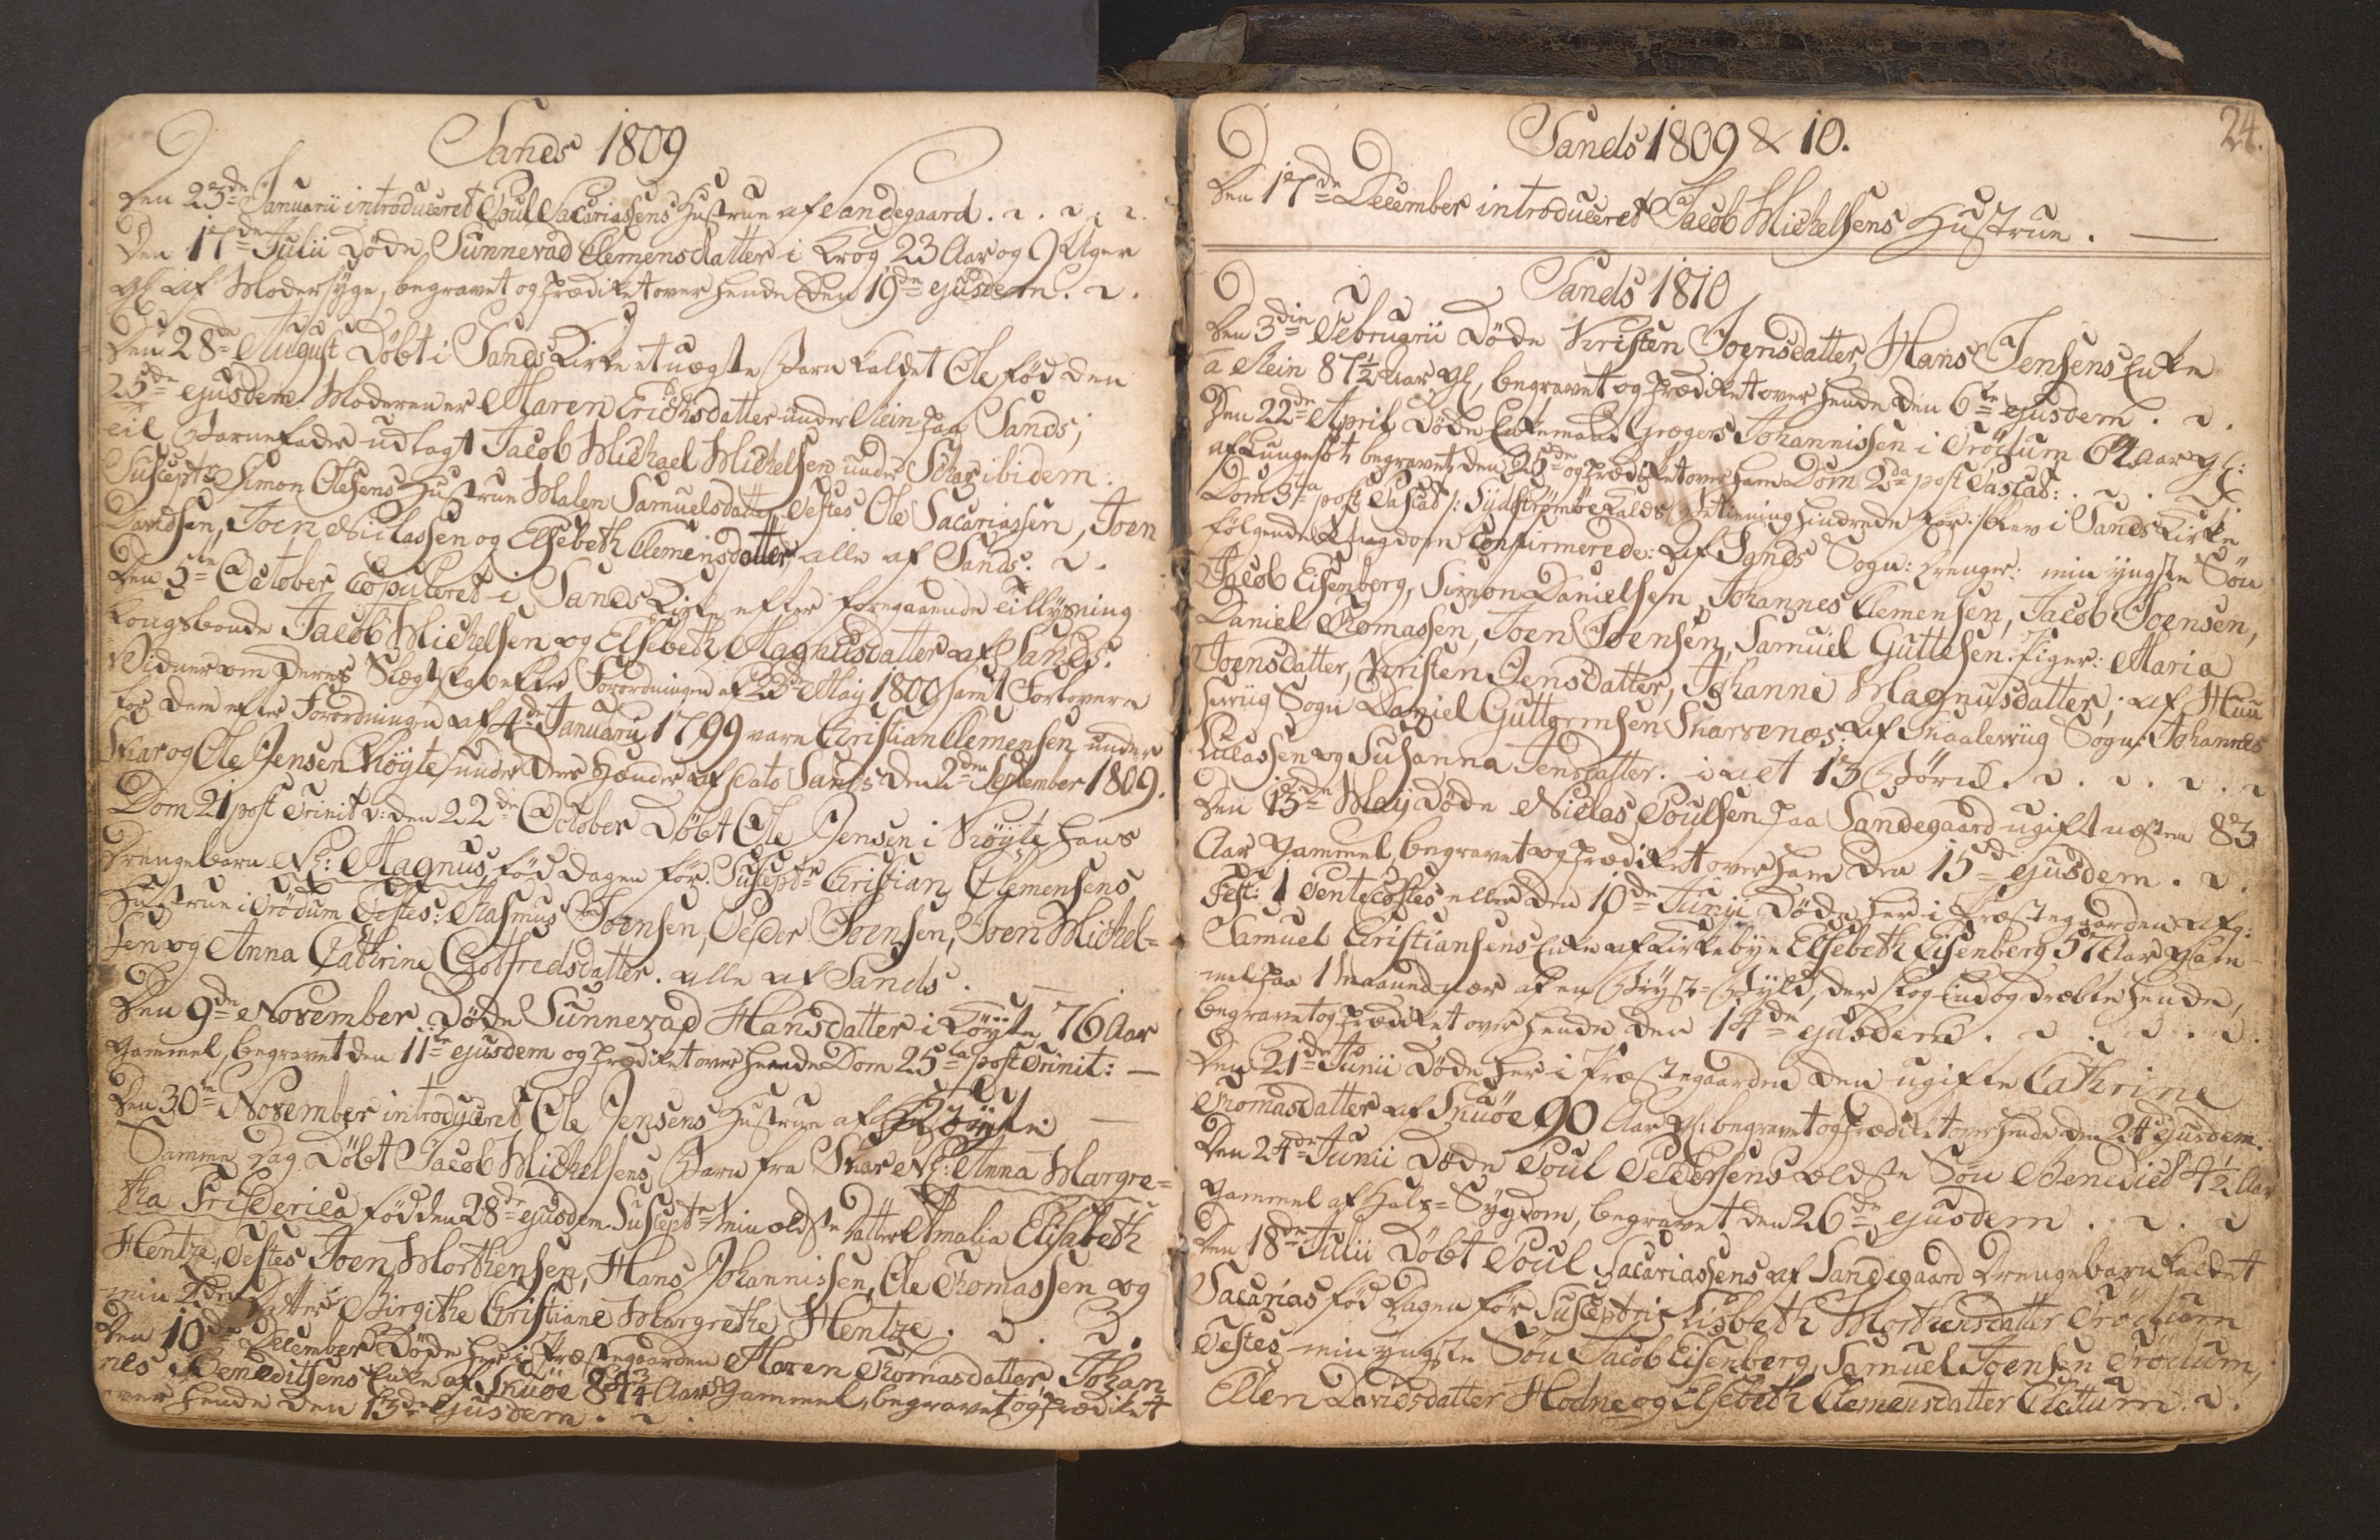 Sands 1809
Den 23de Januarii introduceret Poul Sacariassens Hustrue af Sandegaard.
Den 17de Julii Døde Sunnevad Clemensdatter i Krog 23 Aar og 9 Uger
gl. af Modersyge, begravet og prædiket over hende den 19de ejusdem.
Den 28de August Døbt i Sands Kirke et uægte Barn kaldet Ole, fød den
25de ejusdem. Moderen er Maren Erichsdatter under Rein paa Sands;
til Barnefader udlagt Jacob Michael Michelsen under Skar ibidem:
Susceptr: Simon Olesens Hustrue Malen Samuelsdatter, Testes Ole Sacariassen, Joen
Davidsen, Joen Niclassen og Elsebeth Clemensdatter alle af Sands.
Den 5te October Copuleret i Sands Kirke efter foregaaende Tillysning
Kongsbonde Jacob Michelsen og Elsebeth Magnusdatter af Sands.
Vidner om deres Slægtskab efter Forordningen af 23de Maij 1800 samt Forlovere
for dem efter Forordningen af 4de Januarii 1799 vare Christian Clemensen under
Skar og Ole Jensen Køyte under deres Hænder af Dato Sands den 2den September 1809.
Dom 21 post Trinit: d: den 22de October Døbt Ole Jensen i Køyte hans
Drengebarn Nl: Magnus, fød dagen før. Susceptr: Christian Clemensens
Hustrue i Trödum Testes: Rasmus Joensen, Peder Joensen, Joen Michel=
sen og Anna Cathrine Gotfredsdatter. alle af Sands.
Den 9de November Døde Sunnevad Hansdatter i Köyte 76 Aar
gammel, begravet den 11te ejusdem og prædiket over hende Dom 25ta post Trinit:
Den 30te November introduceret Ole Jensens Hustrue af Köyte.
Samme Dag Døbt Jacob Michelsens Barn fra Skar Nl: Anna Margre=
tha Friderica fød den 28de ejusdem. Susceptr: min ældste Datter Amalia Elisabeth
Hentze, Testes Joen Morthensen, Hans Johannissen, Ole Thomassen og
min 2den Datter Birgithe Christiane Margrethe Hentze.
Den 10de December Døde her i Præstegaarden Maren Thomasdatter Johan
nes Beneditsens Enke af Skuöe 87¾ Aar Gammel, begravet og prædiket
over hende den 13de ejusdem.
24.
Sands 1809 & 10.
Den 17de December introduceret Jacob Michelsens Hustrue.
Sands 1810
Den 3die Februarii Døde Kristen Joensdatter, Hans Jensens Enke
a Rein 87½ Aar gl, begravet og prædiket over hende den 6te ejusdem.
Den 22de April Døde Enkemand Grægers Johannissen i Trödum 64 Aar gl:
af Lungesot, begravet den 26de og prædiket over ham Dom 2da post Pascas:
Dom 3tia post Pascas /: Sydströmöe hindrede før :/ blev i Sands Kirke
følgende Ungdom Confirmerede: Af Sands Sogn: Drenger: min yngste Søn
Jacob Eisenberg, Simon Danielsen, Johannes Clemensen, Jacob Joensen,
Daniel Thomassen, Joen Joensen, Samuel Guttesen. Piger: Maria
Joensdatter, Kristen Jensdatter, Johanne Magnusdatter; af Huu
sevüg Sogn Daniel Guttormsen Skarvenæs: Af Skaalevüg Sogn: Johannes
Lucassen og Susanna Jensdatter. i alt 13 Børn.
Den 13de Maij Døde Niclas Poulsen paa Sandegaard ugift næsten 83
Aar Gammel, begravet og prædiket over ham den 15de ejusdem.
Fest: 1 Pentecostes eller den 10de Junii Døde her i Præstegaarden afg:
Samuel Christiansens Enke af Kirkebye Elsebeth Eisenberg 57 Aar gam=
mel paa 1 Maaned nær af en Bryst=Byld, der slog ind og dræbte hende,
begravet og prædiket over hende den 14de ejusdem.
Den 21de Junii Døde her i Præstegaarden den ugifte Cathrine
Thomasdatter af Skuöe 90 Aar gl: begravet og prædiket over hende den 24de ejusdem.
Den 24de Junii Døde Poul Pedersens ældste Søn Benedict 4½ Aar
gammel af Hals=Sygdom, begravet den 26de ejusdem.
Den 18de Julii Døbt Poul Sacariassens af Sandegaard Drengebarn kaldet
Sacarias fød dagen før Susceptrix Lisbeth Morthensdatter Trödum
Testes min yngste Søn Jacob Eisenberg, Samuel Joensen Trödum,
Ellen Davidsdatter Hodne og Elsebeth Clemensdatter Clettum.